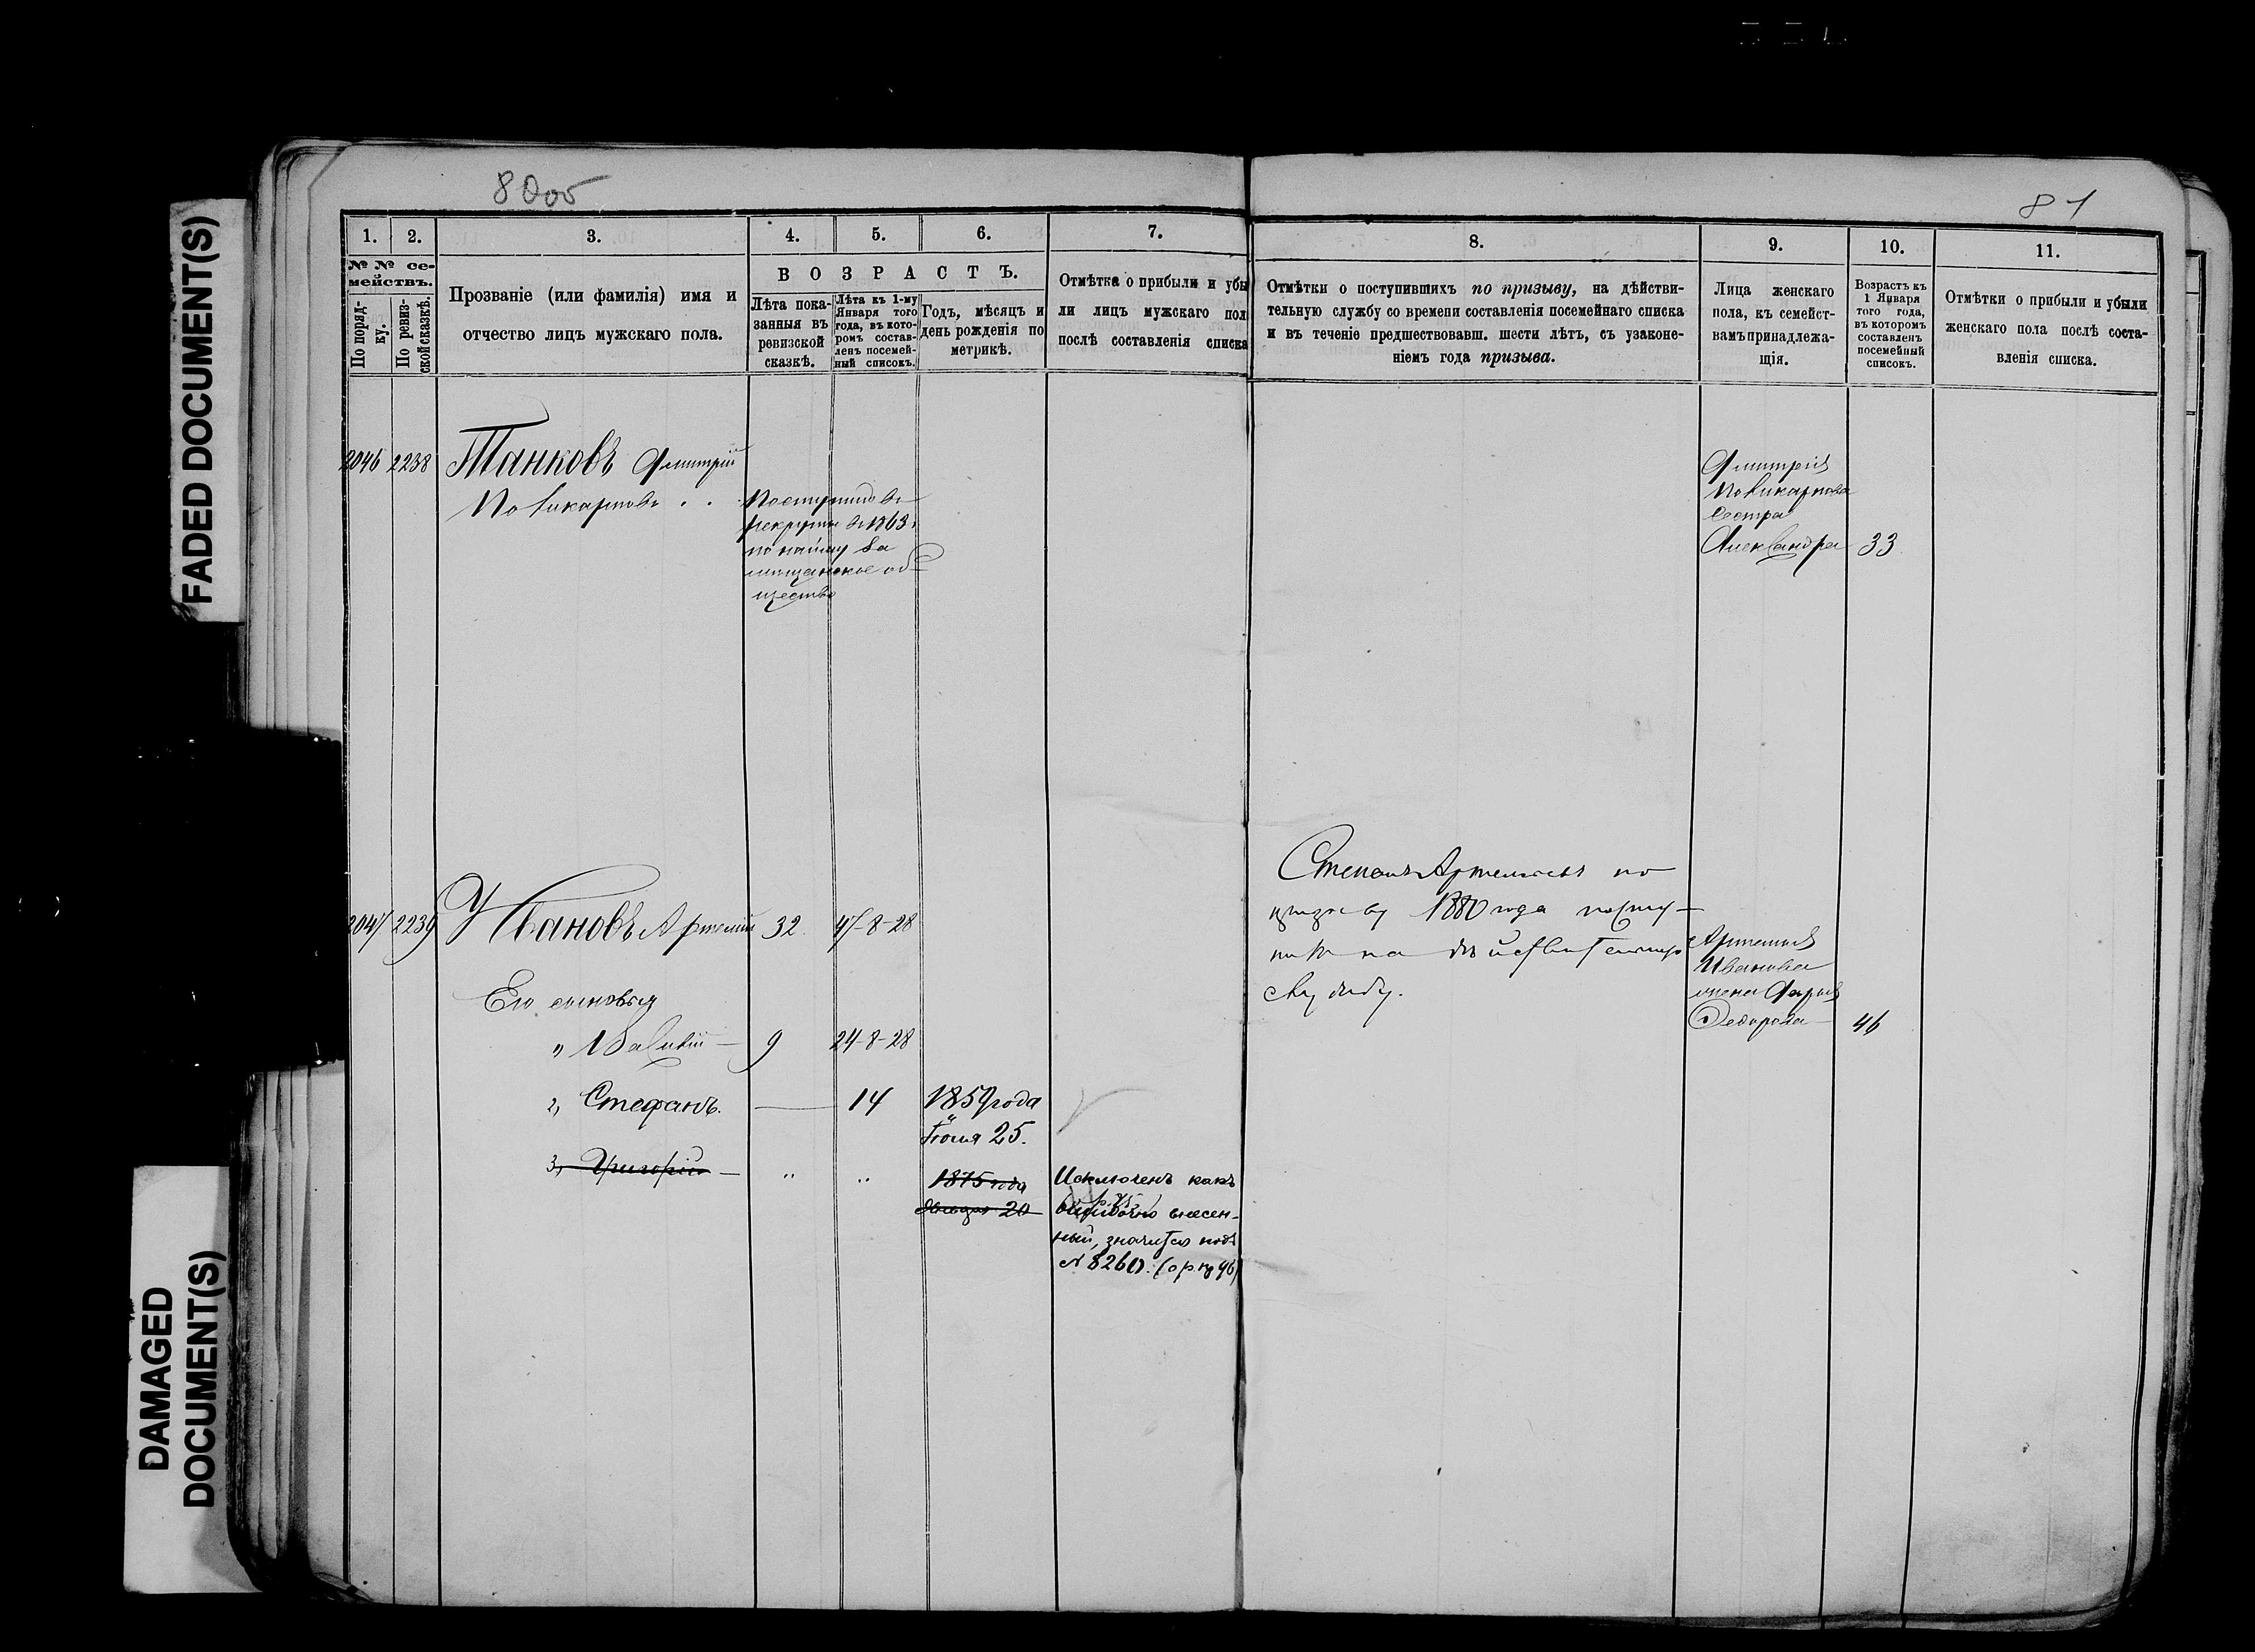 FADED DOCUMENT(S)
DAMAGED
DOCUMENT(S)
81
1.
2.
3.
4.
5.
6.
7.
8.
9.
10.
11.
№ № се-
мействъ.
По поряд-
ку.
По ревиз-
ской сказкѣ.
Прозваніе (или фамилія) имя и
отчество лицъ мужскаго пола.
ВОЗРАСТЪ.
Лѣта пока-
занныя въ
ревизской
сказкѣ.
Лѣта къ 1-му
Января того
года, въ кото-
ромъ состав-
ленъ посемей-
ный списокъ.
Годъ, мѣсяцъ и
день рожденія по
метрикѣ.
Отмѣтка о прибыли и убы
ли лицъ мужскаго пол
послѣ составленія списка
Отмѣтки о поступившихъ по призыву, на дѣйстви-
тельную службу со времени составленія посемейнаго списка
и въ теченіе предшествовавш. шести лѣтъ, съ узаконе-
ніемъ года призыва.
Лица женскаго
пола, къ семейст-
вамъ принадлежа-
щія.
Возрастъ къ
1 Января
того года,
въ которомъ
составленъ
посемейный
списокъ.
Отмѣтки о прибыли и убыли
женскаго пола послѣ соста-
вленія списка.
2046 2238 Танковъ Дмитрій
Поликарповъ
Поступилъ въ
рекруты въ 1863
по найму за
мѣщанское об-
щество
Дмитрія
Поликарпова
сестра
Александра 33
2047 2239 Ивановъ Артемій 32. 47-8-28
Его сыновья
1) Василій 9 24-8-28
2, Стефанъ. 14 1859 года
Іюня 25.
3, Григорій 1875 года
Января 20
Исключенъ какъ
ошибочно внесен-
ный, значится подъ
№ 8260.
Степанъ Артемьевъ по
призыву 1880 года посту-
пилъ на дѣйствительную
службу.
Артемія
Иванова
жена Дарья
Федорова 46